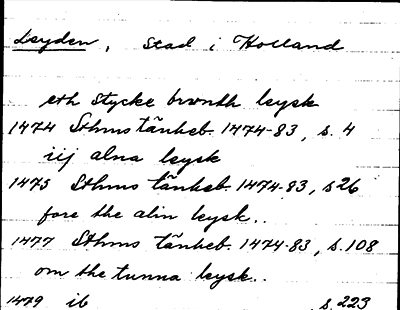 Leyden, Stad i Holland
eth stycke brwnth leysk
1474 Sthms tänkeb. 1474-83, s. 4
iij alna leysk
1475 Sthms tänkeb. 1474-83, s 26
fore the alin leysk..
1477 Sthms tänkeb. 1474-83, s. 108
om the tunna leysk..
1479 ib s. 223